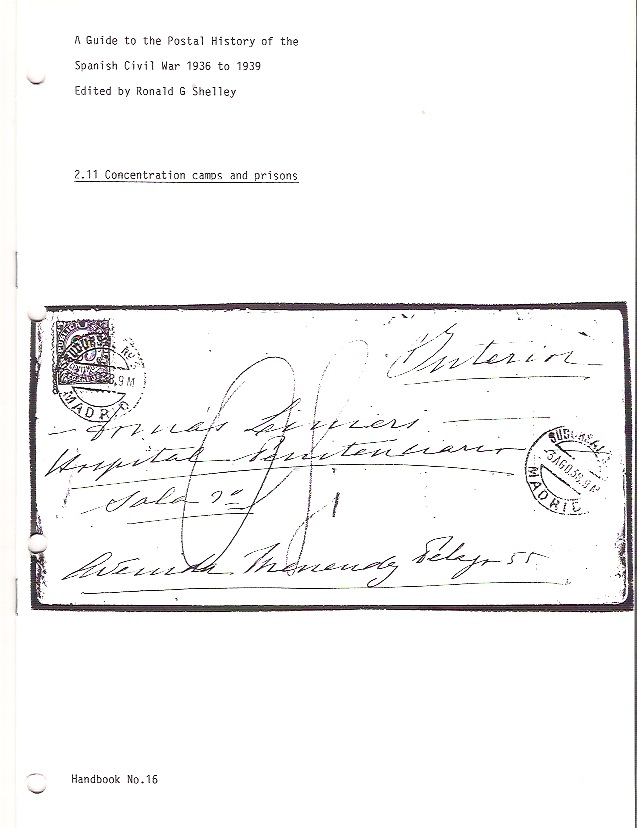 A Guide to the Postal History of the
Spanish Civil War 1936 to 1939
Edited by Ronald G Shelley
2.11 Concentration camps and prisons
Interior
MADRID
Tomás
Hospital Penitenciario
Sala 2ª
SUCURSAL
MADRID
Avenida Menendez Pelayo 55
Handbook No.16